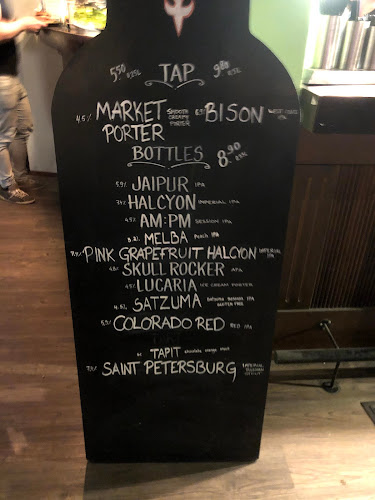 5.50 0.25L TAP 9.80 0.5L
4,5% MARKET PORTER SMOOTH CREAMY PORTER BISON WEST COAST IPA
BOTTLES 8.90
5.9% JAIPUR IPA
7.4% HALCYON IMPERIAL IPA
4.5% AM:PM SESSION IPA
MELBA Peach IPA
7.4% PINK GRAPEFRUIT HALCYON IMPERIAL IPA
4.8% SKULL ROCKER APA
4.8% LUCARIA ICE CREAM PORTER
4.8% SATZUMA Satsuma Session IPA GLUTEN FREE
5.9% COLORADO RED RED IPA
TAPIT chocolate orange stout
7.4% SAINT PETERSBURG IMPERIAL RUSSIAN STOUT